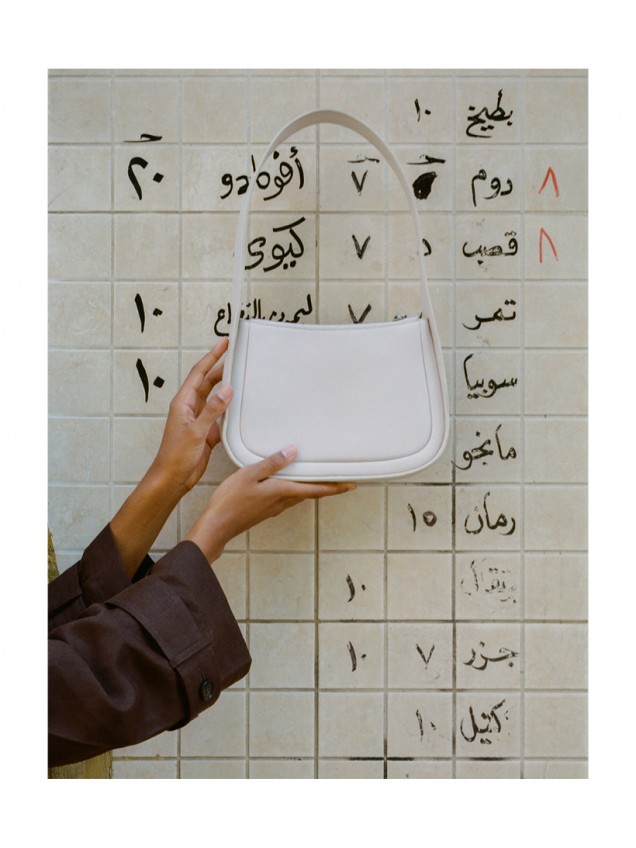 بطيخ ١٠
٨ دوم ٧ أفوكادو ٢٠
٨ قصب ٧ كيوى
تمر ٧ ١٠
سوبيا ١٠
مانجو
رمان ١٥
برتقال ١٠
جزر ٧ ١٠
١٠